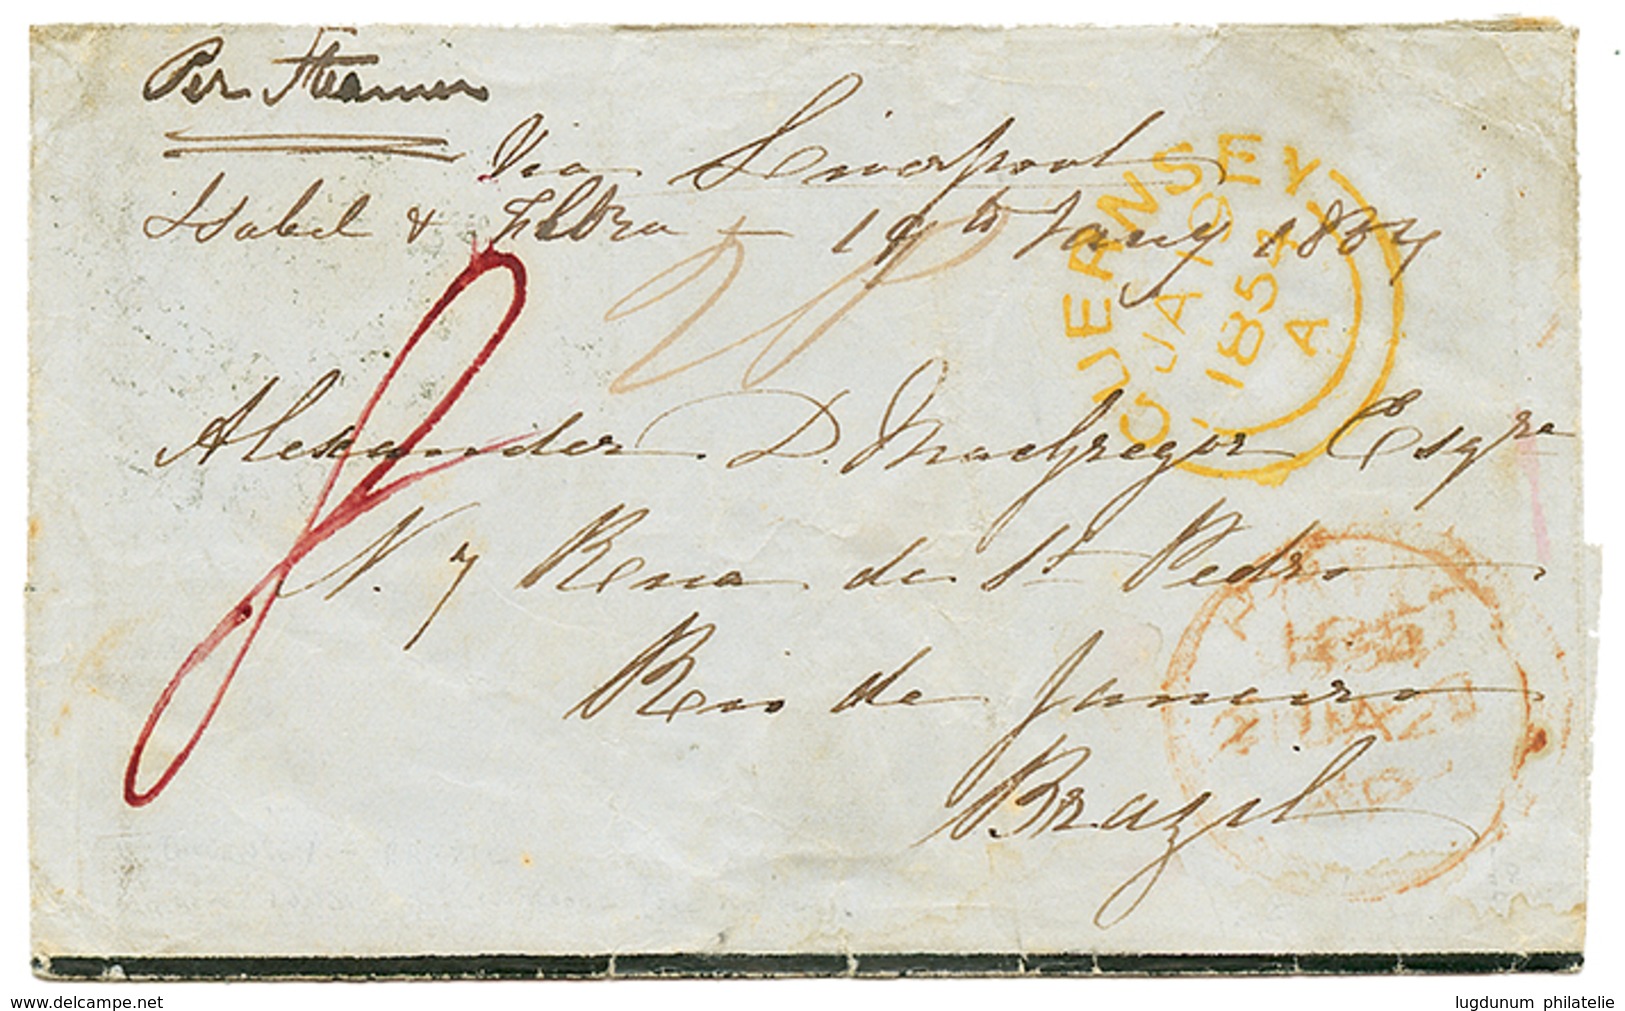 Per Steamer
Via Liverpool
Isabel & 19th Jany 1854
GUERNSEY
JA 19
1854
A
Alexander D. MacGregor Esqre
N. 7 Rua de St Pedro
Rio de Janeiro
Brazil
www.delcampe.net
lugdunum philatelie